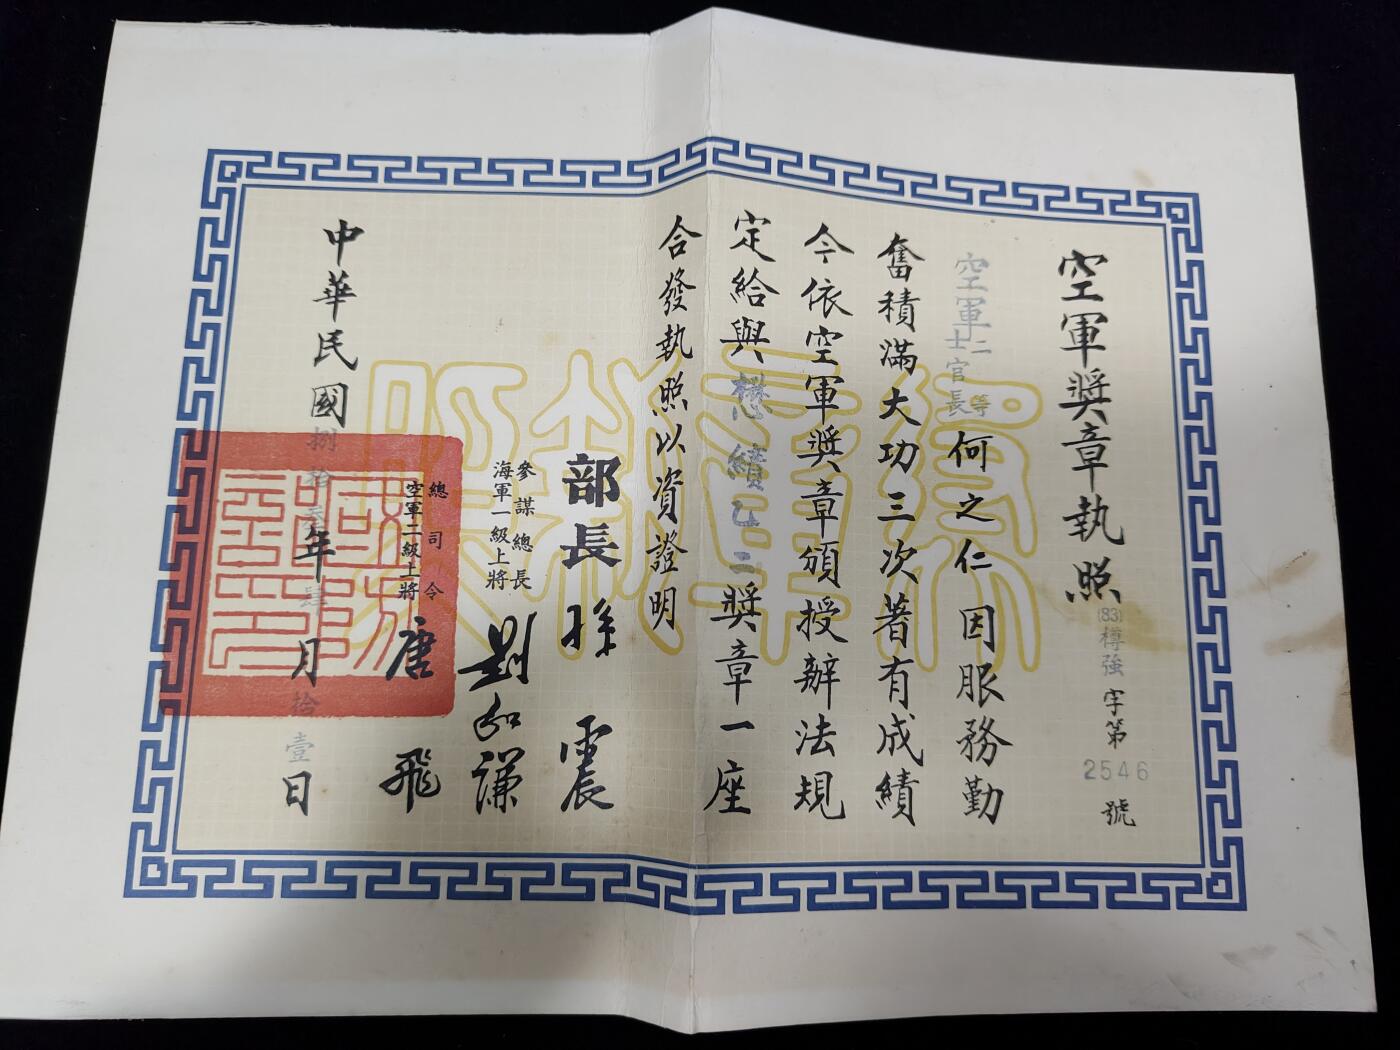 空軍獎章執照
(83)樽強字第2546號
空軍二等士官長何之仁因服務勤
奮積滿大功三次著有成績
今依空軍獎章頒授辦法規
定給與懋績乙二獎章一座
合發執照以資證明
部長 孫震
參謀總長
海軍一級上將 劉和謙
總司令
空軍二級上將 唐飛
中華民國捌拾叁年肆月拾壹日